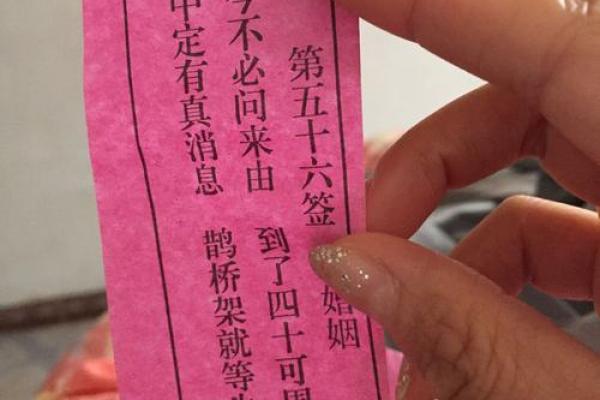 第五十六签 婚姻
不必问来由 到了四十可
中定有真消息 鹊桥架就等